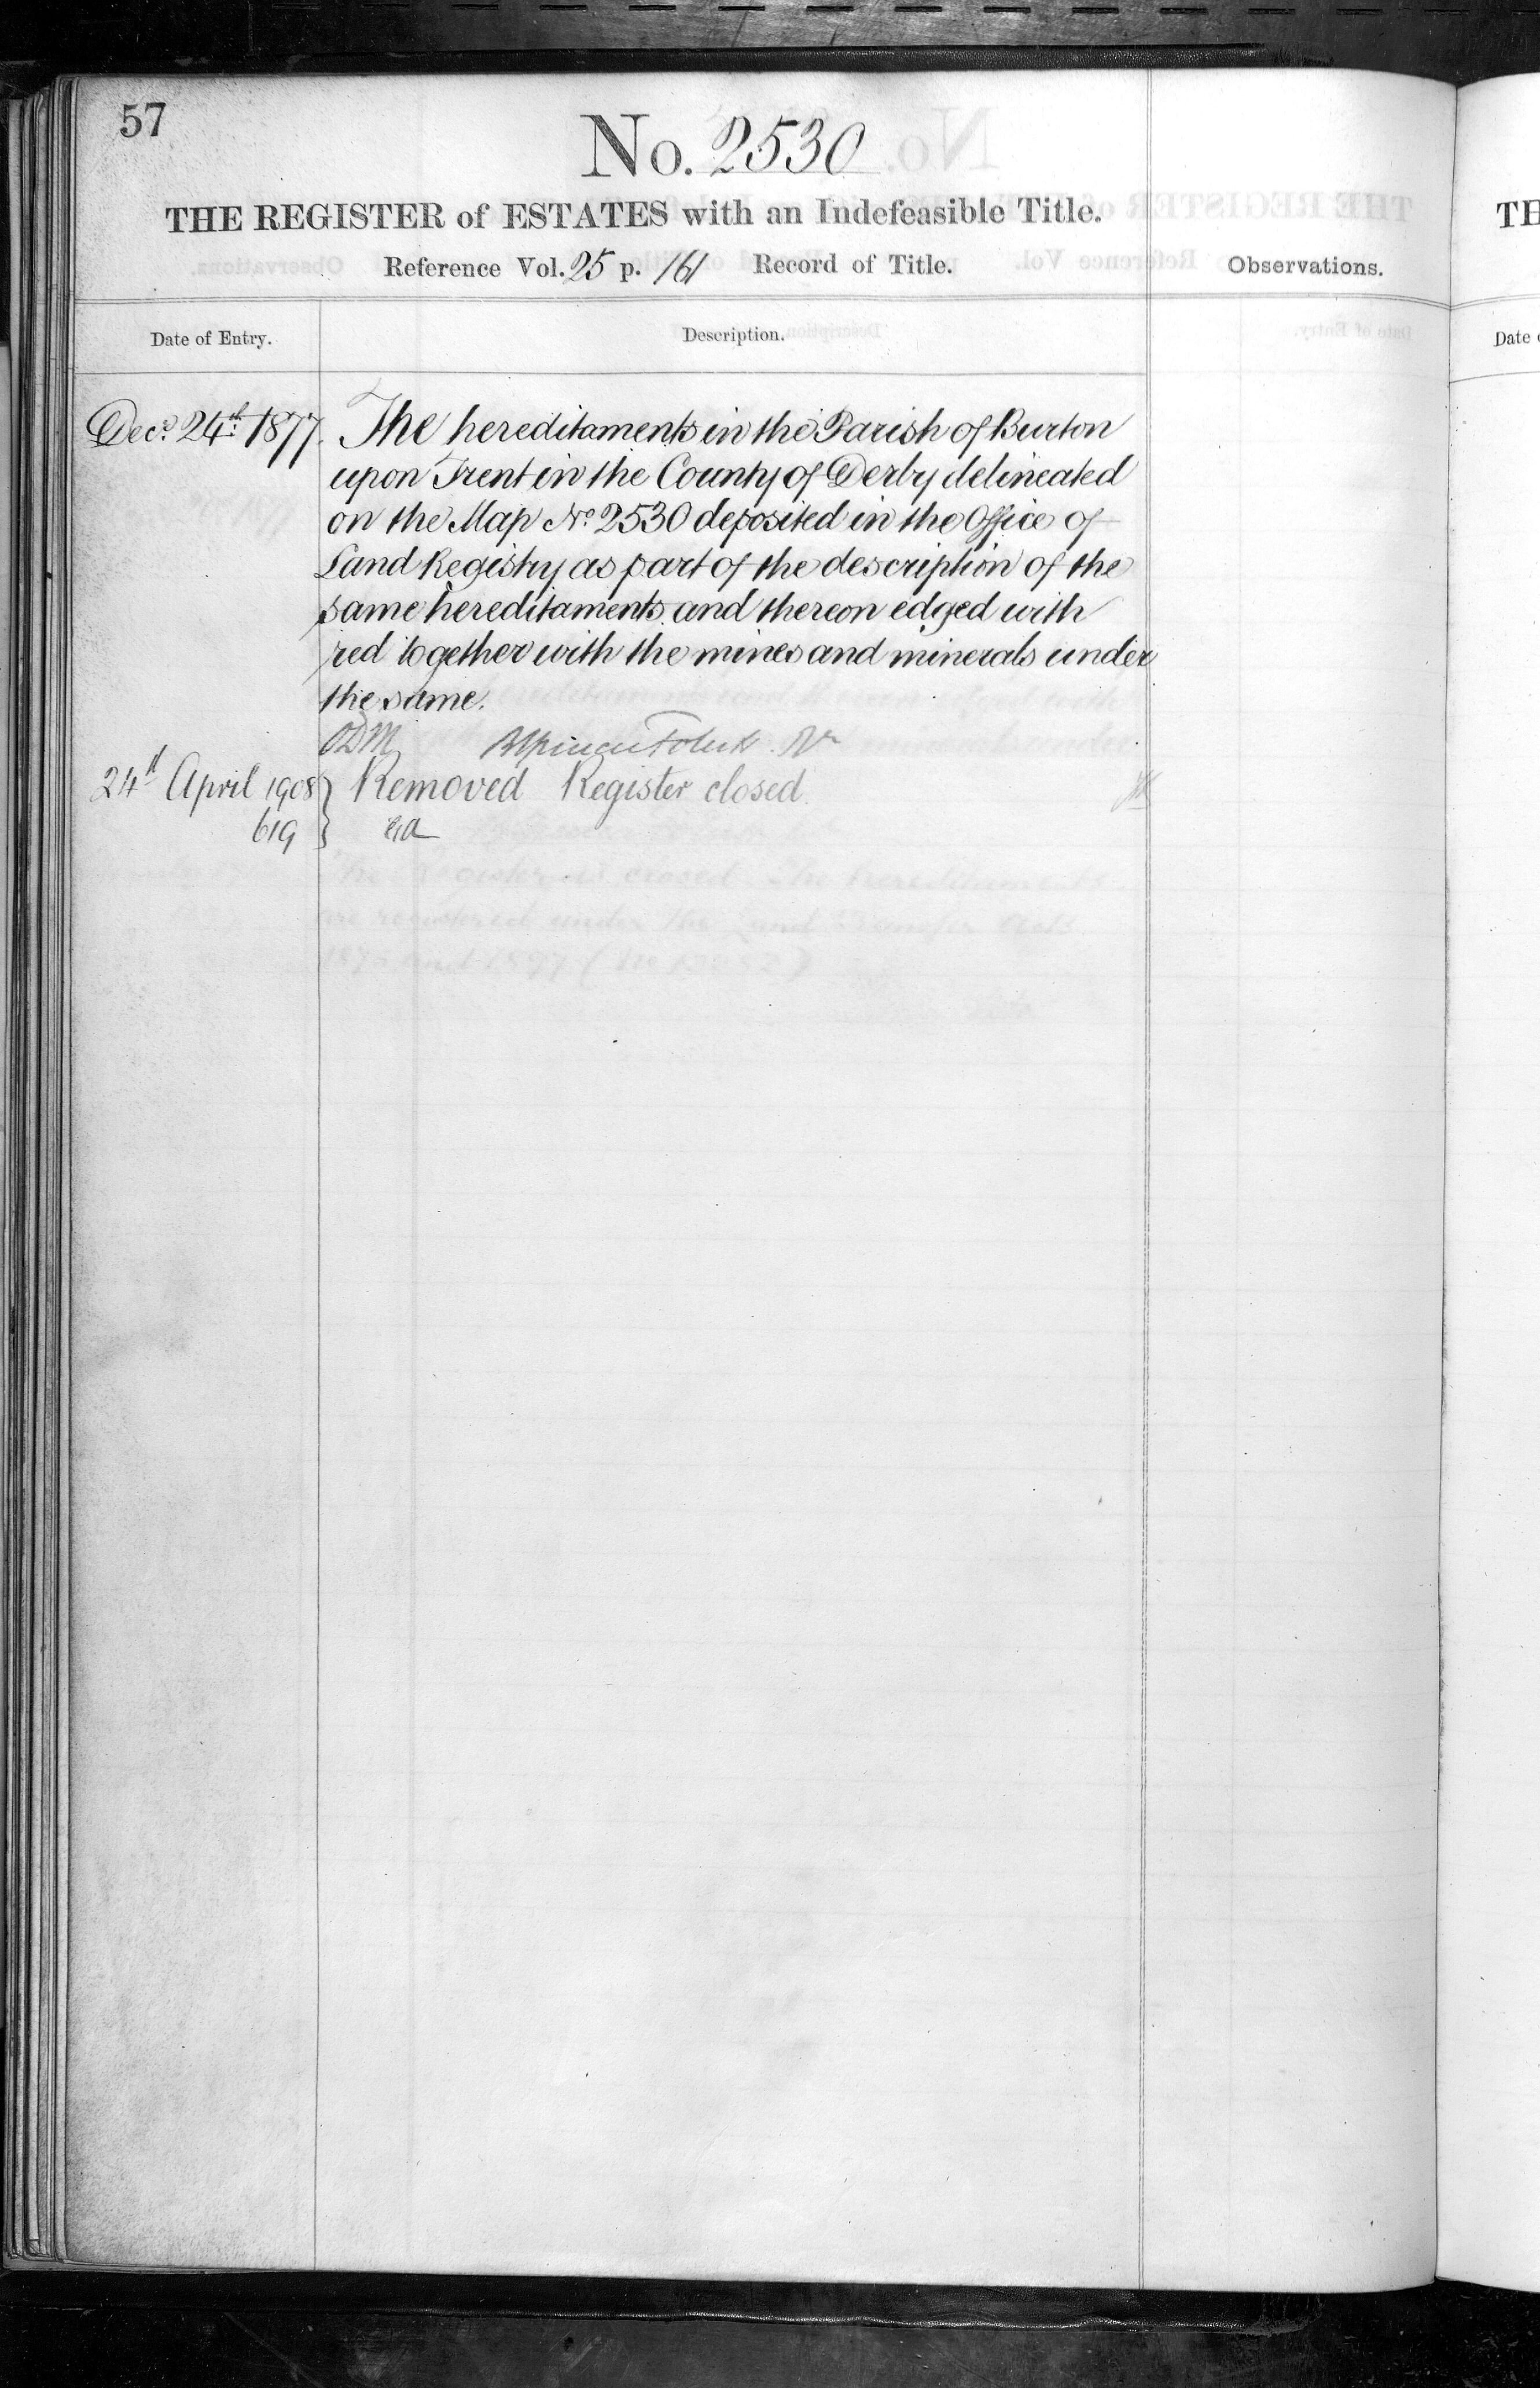 57
No. 2530
THE REGISTER of ESTATES with an Indefeasible Title.
Reference Vol. 25 p. 161 Record of Title.
Observations.
Date of Entry.
Description.
Decr. 24th 1877. The hereditaments in the Parish of Burton
upon Trent in the County of Derby delineated
on the Map No. 2530 deposited in the Office of
Land Registry as part of the description of the
same hereditaments and thereon edged with
red together with the mines and minerals under
the same.
ODM
24th April 1908 } Removed Register closed.
619 }
TH
Date